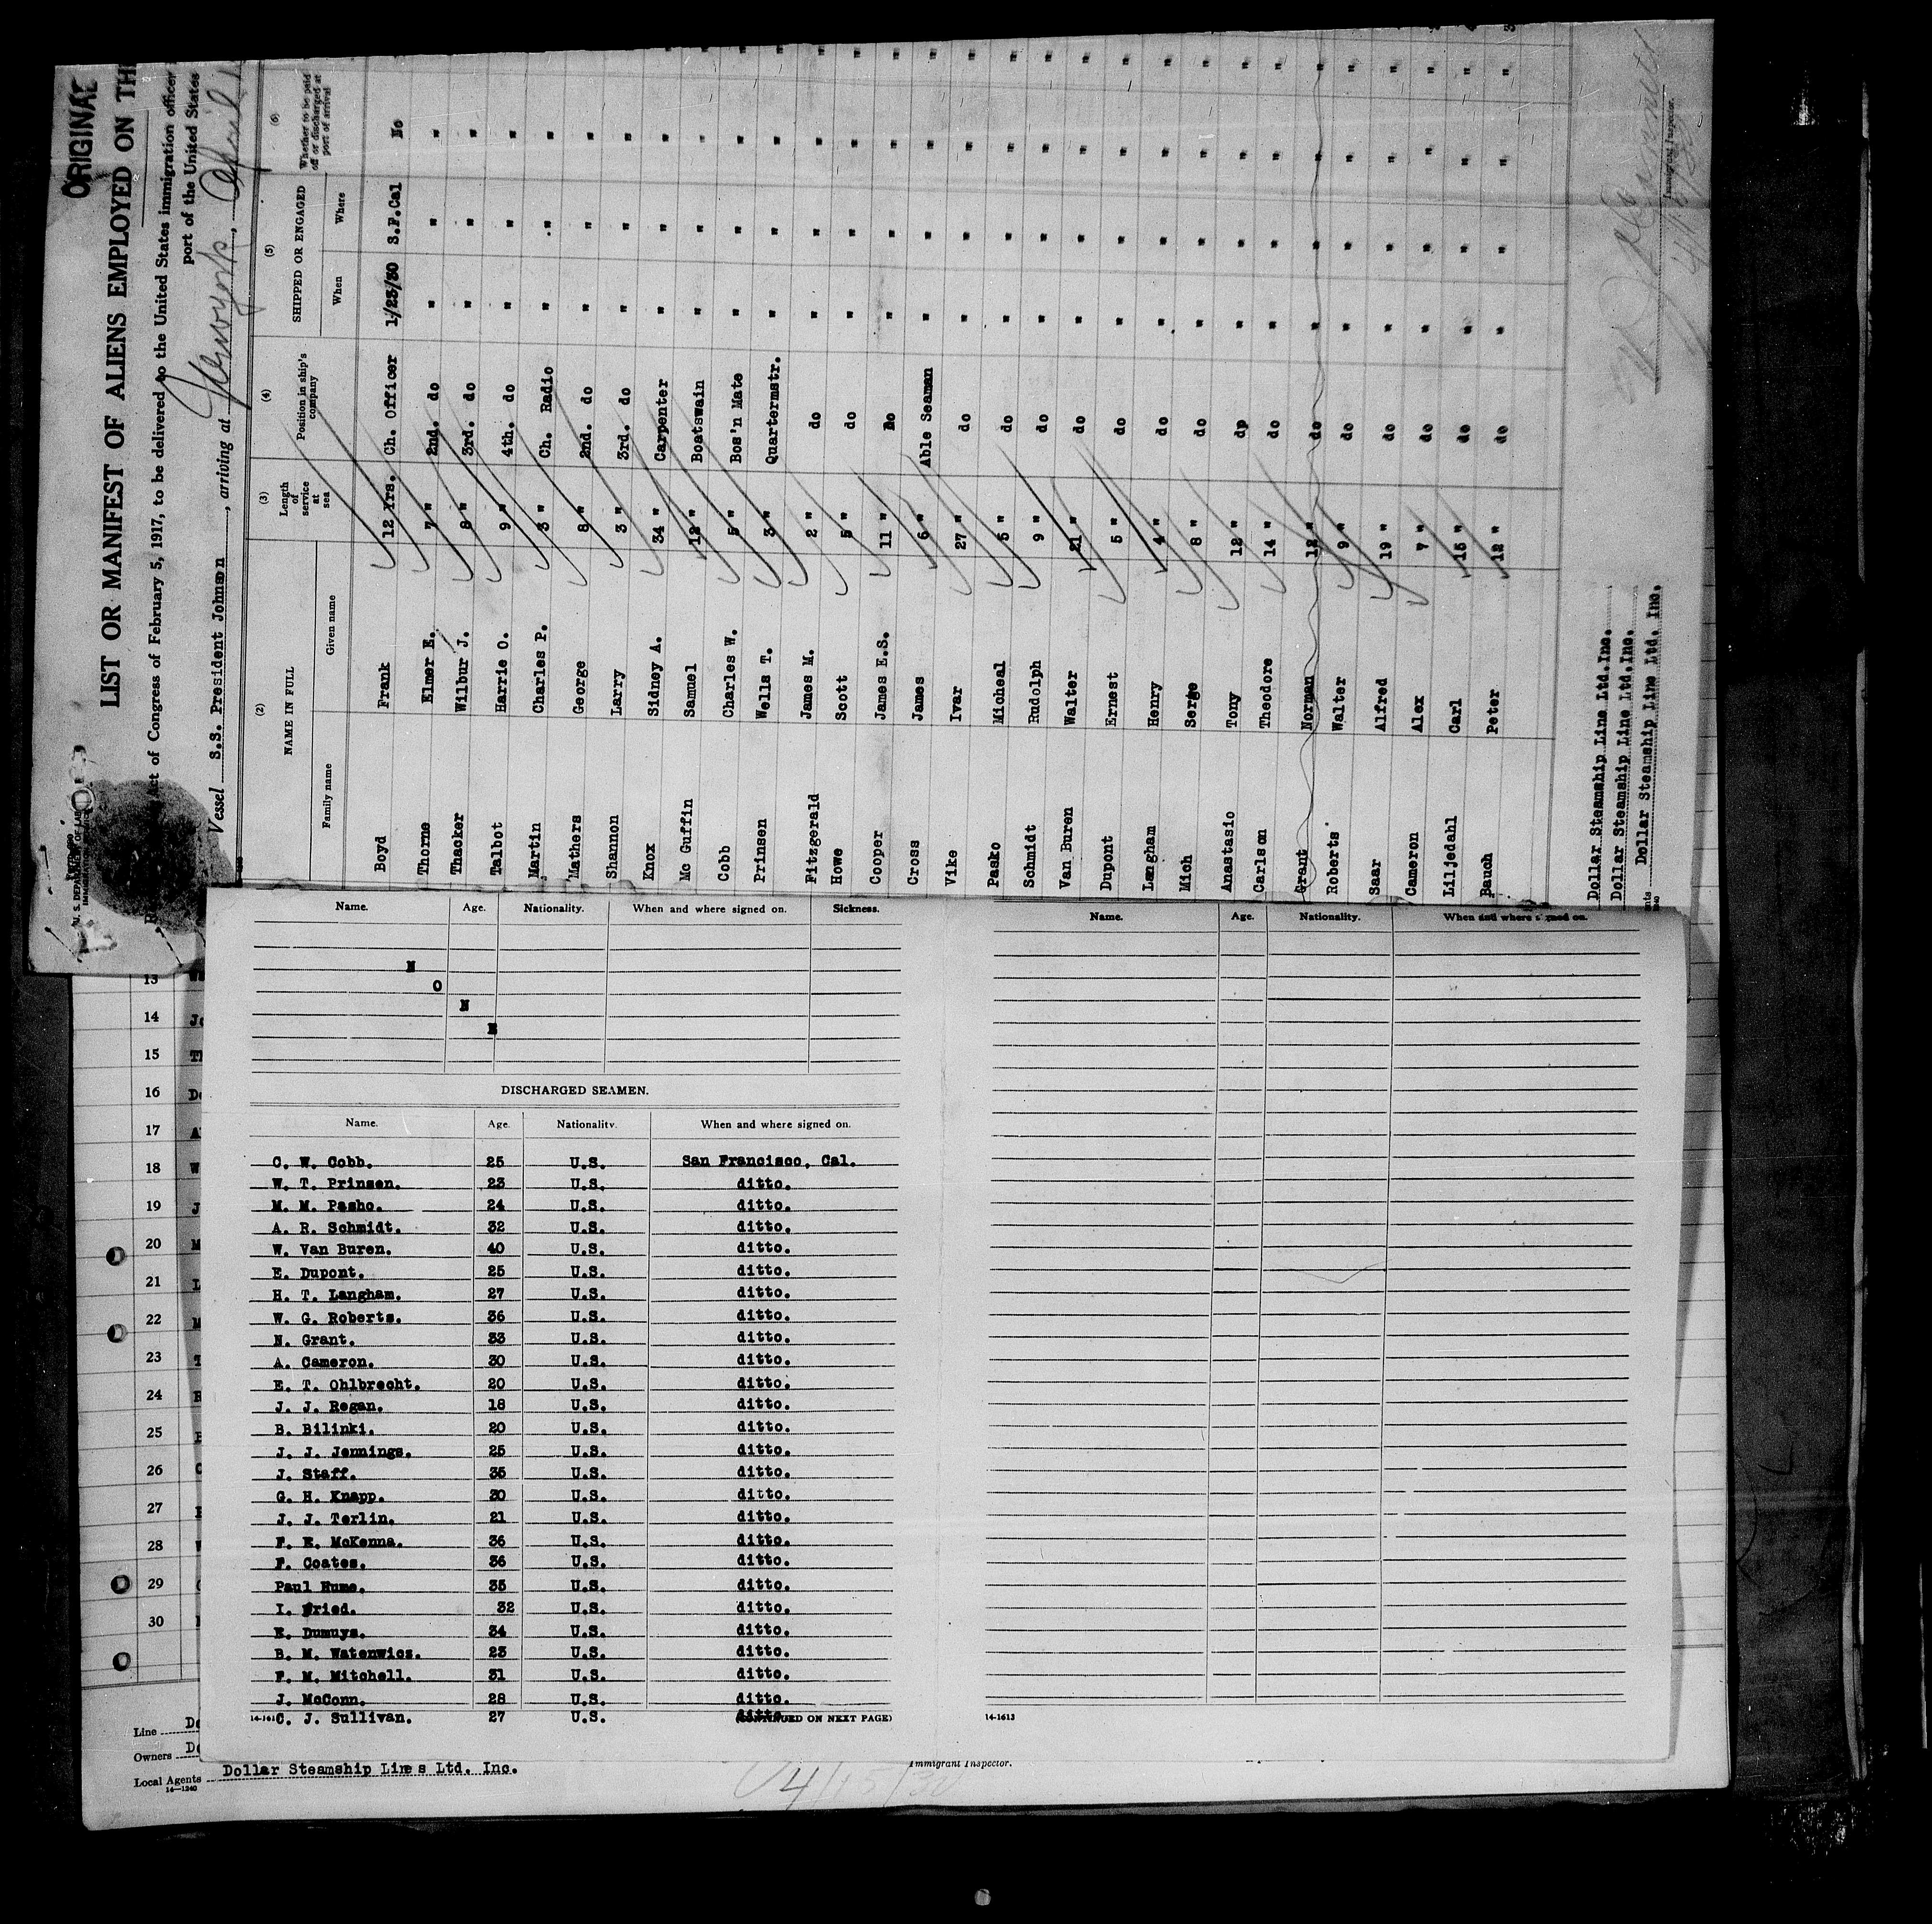 ORIGINAL
LIST OR MANIFEST OF ALIENS EMPLOYED ON TH
Act of Congress of February 5, 1917, to be delivered to the United States immigration officer
port of the United States
Vessel S.S. President Johnson, arriving at Newyork, April
(2) (3) (4) (5) (6)
NAME IN FULL Length of service at sea Position in ship's company SHIPPED OR ENGAGED Whether to be paid off or discharged at port of arrival
Family name Given name When Where
Boyd Frank 12 Yrs. Ch. Officer 1/23/30 S.F.Cal No
Thorne Elmer E. 7 " 2nd. do " " "
Thacker Wilbur J. 8 " 3rd. do " " "
Talbot Harrie O. 9 " 4th. do " " "
Martin Charles P. 3 " Ch. Radio " " "
Mathers George 8 " 2nd. do " " "
Shannon Larry 3 " 3rd. do " " "
Knox Sidney A. 34 " Carpenter " " "
Mc Guffin Samuel 12 " Boatswain " " "
Cobb Charles W. 5 " Bos'n Mate " " "
Prinsen Wells T. 3 " Quartermstr. " " "
Fitzgerald James M. 2 " do " " "
Howe Scott 5 " do " " "
Cooper James E.S. 11 " Do " " "
Cross James 6 " Able Seaman " " "
Vike Ivar 27 " do " " "
Pasko Micheal 5 " do " " "
Schmidt Rudolph 9 " do " " "
Van Buren Walter 21 " do " " "
Dupont Ernest 5 " do " " "
Langham Henry 4 " do " " "
Mich Serge 8 " do " " "
Anastasio Tony 12 " dp " " "
Carlson Theodore 14 " do " " "
Grant Norman 12 " do " " "
Roberts Walter 9 " do " " "
Saar Alfred 19 " do " " "
Cameron Alex 7 " do " " "
Liljedahl Carl 15 " do " " "
Bauch Peter 12 " do " " "
Dollar Steamship Line Ltd.Inc.
Dollar Steamship Line Ltd.Inc.
Dollar Steamship Line Ltd. Inc.
Immigrant Inspector.
Name. Age. Nationality. When and where signed on. Sickness.
N
O
N
E
DISCHARGED SEAMEN.
Name. Age. Nationality. When and where signed on.
C. W. Cobb. 25 U.S. San Francisco, Cal.
W. T. Prinsen. 23 U.S. ditto.
M. M. Pasho. 24 U.S. ditto.
A. R. Schmidt. 32 U.S. ditto.
W. Van Buren. 40 U.S. ditto.
E. Dupont. 25 U.S. ditto.
H. T. Langham. 27 U.S. ditto.
W. G. Roberts. 36 U.S. ditto.
N. Grant. 33 U.S. ditto.
A. Cameron. 30 U.S. ditto.
E. T. Ohlbrecht. 20 U.S. ditto.
J. J. Regan. 18 U.S. ditto.
B. Bilinki. 20 U.S. ditto.
J. J. Jennings. 25 U.S. ditto.
J. Staff. 35 U.S. ditto.
G. H. Knapp. 30 U.S. ditto.
J. J. Terlin. 21 U.S. ditto.
F. E. McKenna. 36 U.S. ditto.
F. Coates. 36 U.S. ditto.
Paul Hume. 35 U.S. ditto.
I. Fried. 32 U.S. ditto.
E. Dumuys. 34 U.S. ditto.
B. M. Watenwicz. 23 U.S. ditto.
F. M. Mitchell. 31 U.S. ditto.
J. McConn. 28 U.S. ditto.
C. J. Sullivan. 27 U.S. ditto.
(CONTINUED ON NEXT PAGE)
Name. Age. Nationality. When and where signed on.
14-1613
13
14
15
16
17
18
19
20
21
22
23
24
25
26
27
28
29
30
Line
Owners
Local Agents Dollar Steamship Lines Ltd. Inc.
14-1240
Immigrant Inspector.